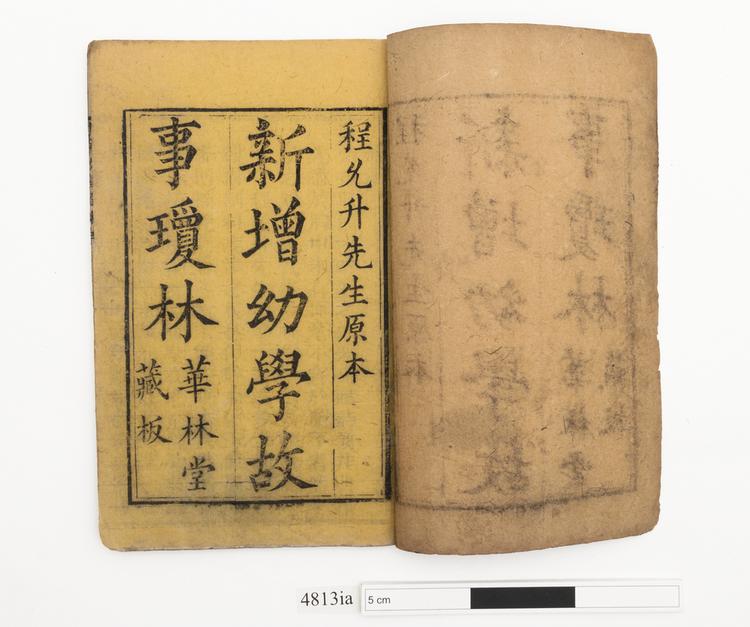 程允升先生原本
新增幼學故
事瓊林
華林堂
藏板
4813ia
5 cm